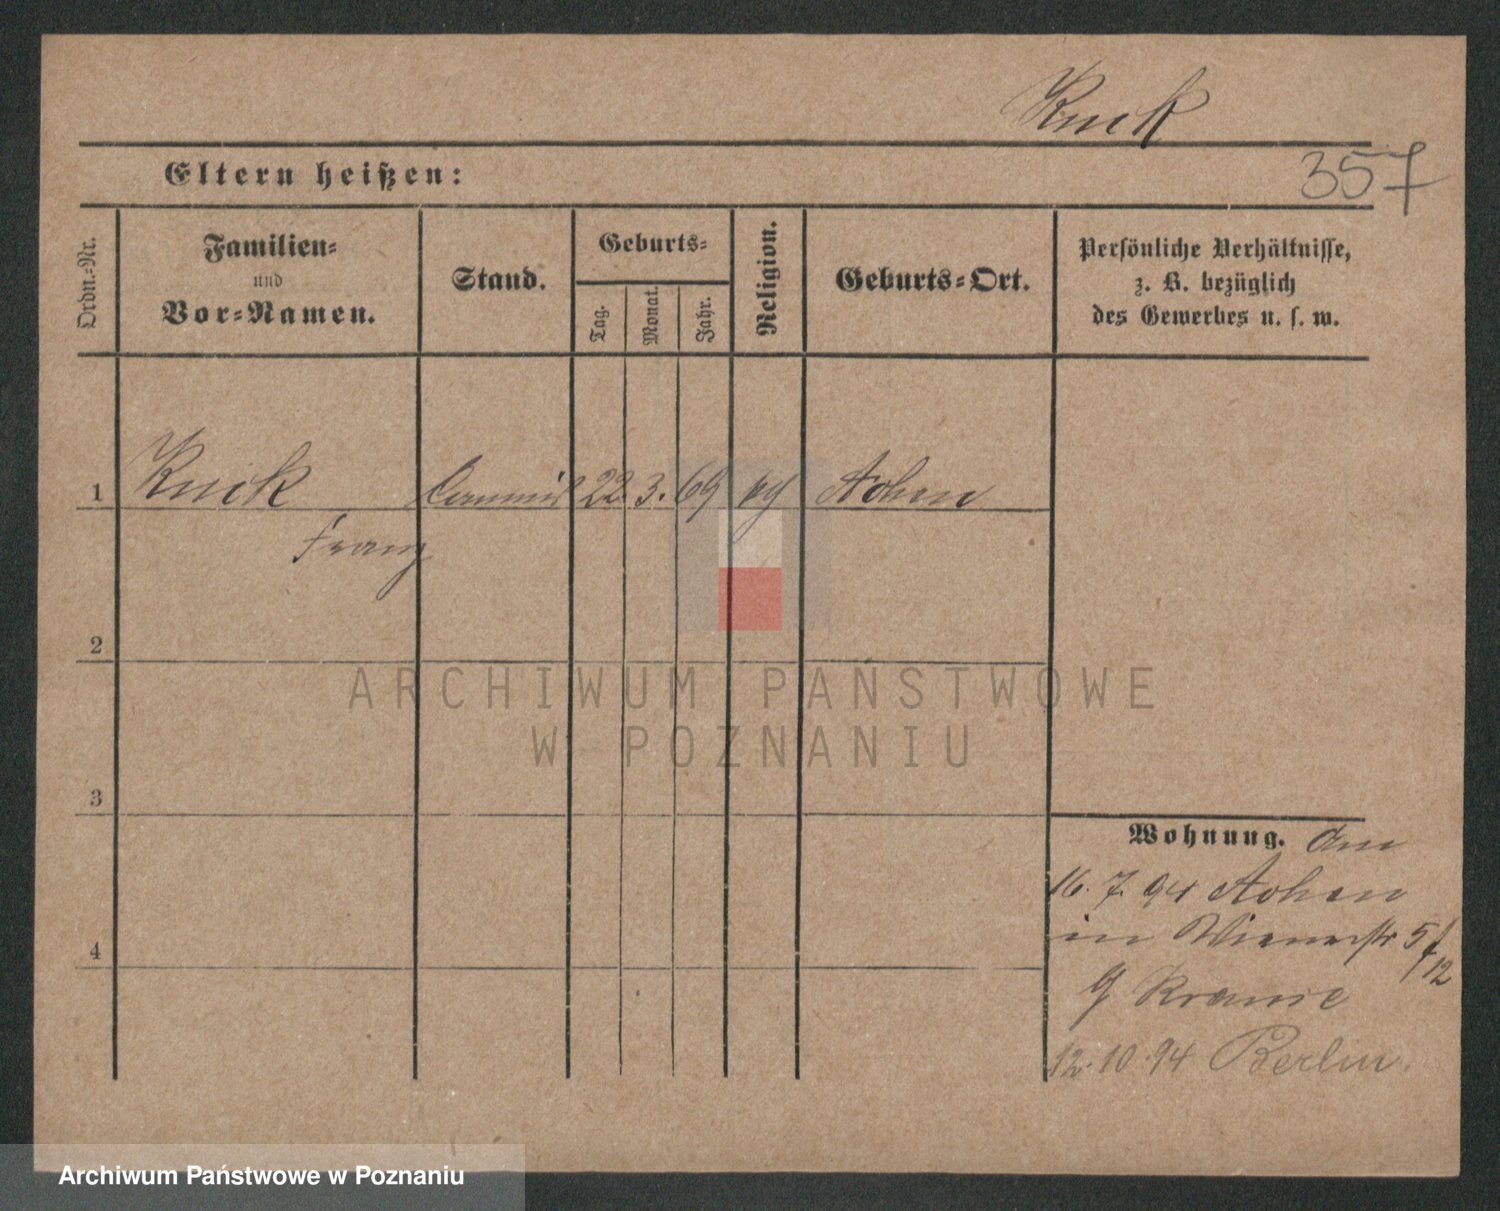 Ruck
357
Eltern heißen:
Ordn.-Nr.
Familien-
und
Vor-Namen.
Stand.
Geburts-
Tag.
Monat.
Jahr.
Religion.
Geburts-Ort.
Persönliche Verhältnisse,
z. B. bezüglich
des Gewerbes u. s. w.
1 Ruck Commis 22. 3. 69 Aohen
Franz
2
3
4
Wohnung. Am
16. 7. 94 Aohen
in Wienerstr 5
12
12. 10. 94 Berlin.
ARCHIWUM PAŃSTWOWE
W POZNANIU
Archiwum Państwowe w Poznaniu